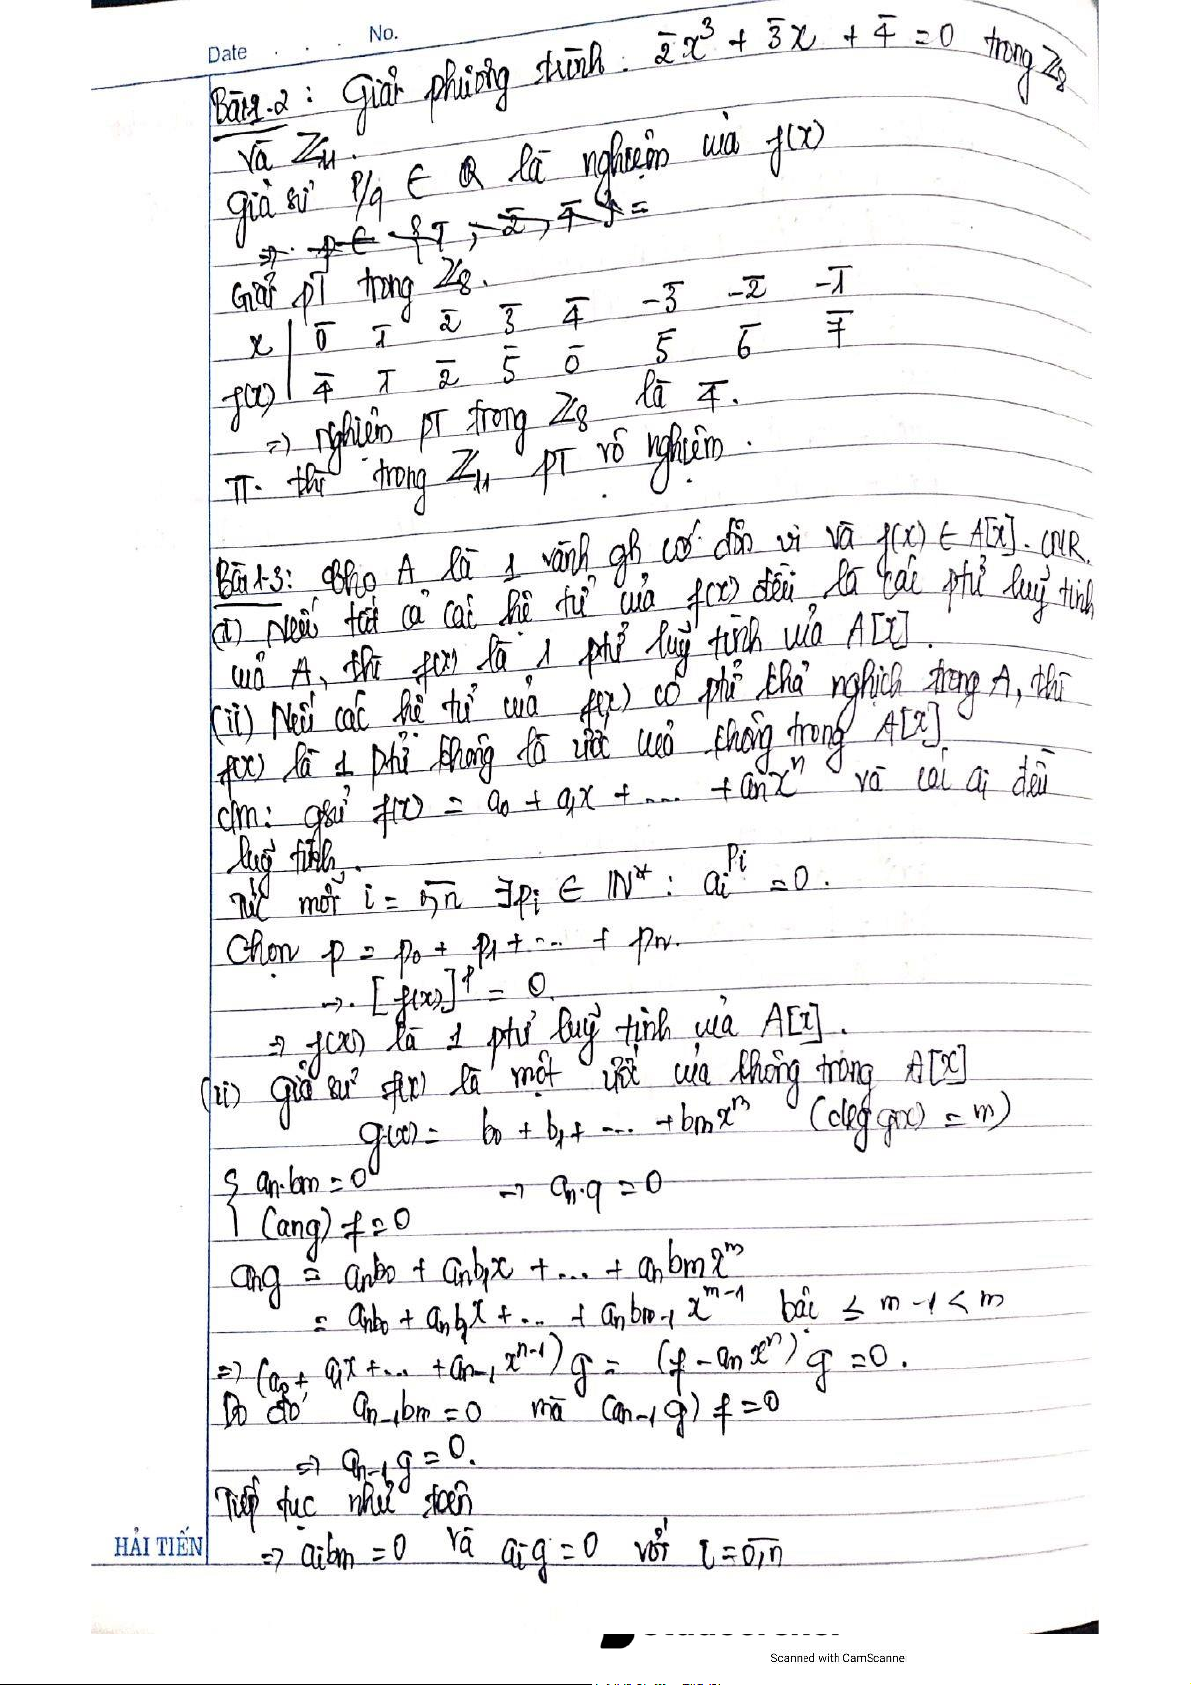 Date . . . No.
Bài 1.2 : Giải phương trình : 2̄x³ + 3̄x + 4̄ = 0 trong ℤ₈
và ℤ₁₁.
Giả sử p/q ∈ Q là nghiệm của f(x)
Giải pT trong ℤ₈.
x | 0̄ 1̄ 2̄ 3̄ 4̄ -3̄ -2̄ -1̄
f(x) | 4̄ 1̄ 2̄ 5̄ 0̄ 5̄ 6̄ 7̄
=> nghiệm pT trong ℤ₈ là 4̄.
TT. thì trong ℤ₁₁ pT vô nghiệm.
Bài 1.3: Cho A là 1 vành gh có đơn vị và f(x) ∈ A[x]. CMR.
(i) Nếu tất cả các hệ tử của f(x) đều là các ptử luỹ linh
của A, thì f(x) là 1 ptử luỹ linh của A[x].
(ii) Nếu các hệ tử của f(x) có ptử khả nghịch trong A, thì
f(x) là 1 ptử không là ước của không trong A[x]
c/m: gsử f(x) = a₀ + a₁x + .... + aₙxⁿ và các aᵢ đều
luỹ linh.
mỗi i = 1,n ∃pᵢ ∈ ℕ* : aᵢ^pᵢ = 0.
Chọn p = p₀ + p₁ + ... + pₙ.
→ . [f(x)]^p = 0.
=> f(x) là 1 ptử luỹ linh của A[x].
(ii) Giả sử f(x) là một ước của không trong A[x]
g(x) = b₀ + b₁ + .... + bₘxᵐ (deg g(x) = m)
{ aₙ.bₘ = 0 → aₙ.g = 0
(aₙg) f = 0
aₙg = aₙb₀ + aₙb₁x + ... + aₙbₘxᵐ
= aₙb₀ + aₙb₁x + ... + aₙbₘ₋₁xᵐ⁻¹ bậc ≤ m-1 < m
=> (a₀ + a₁x + ... + aₙ₋₁xⁿ⁻¹) g = (f - aₙxⁿ) g = 0.
Do đó aₙ₋₁bₘ = 0 mà (aₙ₋₁g) f = 0
=> aₙ₋₁g = 0.
Tiếp tục như trên
=> aᵢbₘ = 0 và aᵢg = 0 với i = 0,n
HẢI TIẾN
Scanned with CamScanne